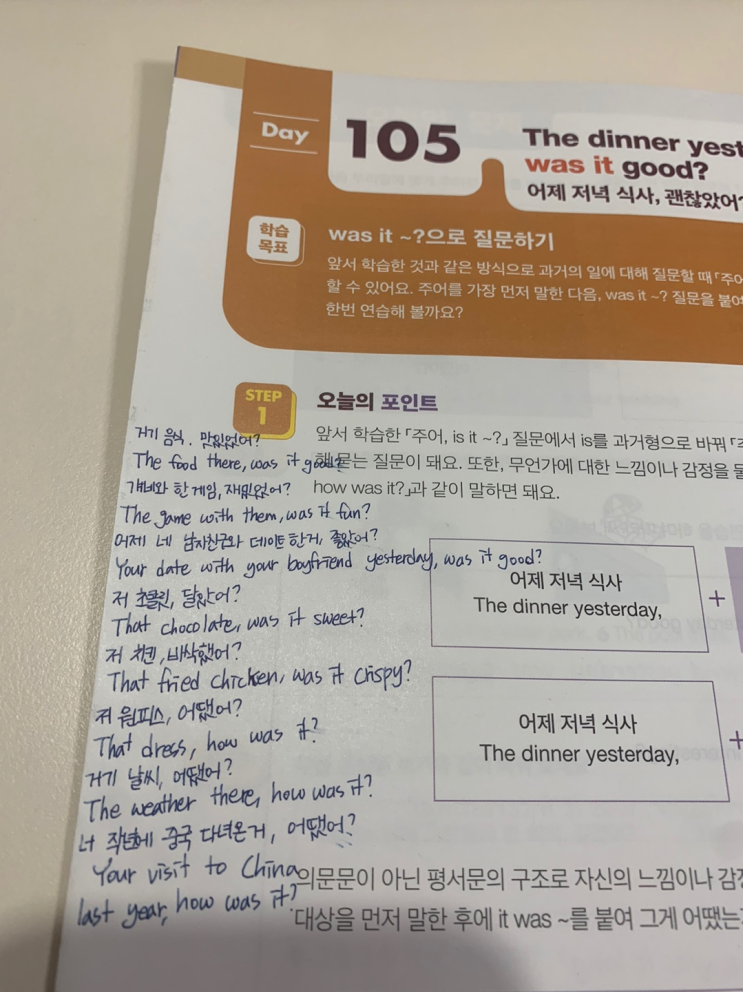 Day 105
The dinner yest
was it good?
어제 저녁 식사, 괜찮았어?
학습
목표
was it ~?으로 질문하기
앞서 학습한 것과 같은 방식으로 과거의 일에 대해 질문할 때 「주어
할 수 있어요. 주어를 가장 먼저 말한 다음, was it ~? 질문을 붙여
한번 연습해 볼까요?
STEP
1
오늘의 포인트
앞서 학습한 「주어, is it ~?」 질문에서 is를 과거형으로 바꿔 「주
해 묻는 질문이 돼요. 또한, 무언가에 대한 느낌이나 감정을 물
how was it?」과 같이 말하면 돼요.
거기 음식, 맛있었어?
The food there, was it good?
걔네와 한 게임, 재밌었어?
The game with them, was it fun?
어제 네 남자친구와 데이트 한거, 좋았어?
Your date with your boyfriend yesterday, was it good?
저 초콜릿, 달았어?
That chocolate, was it sweet?
저 치킨, 바삭했어?
That fried chicken, was it crispy?
저 원피스, 어땠어?
That dress, how was it?
거기 날씨, 어땠어?
The weather there, how was it?
너 작년에 중국 다녀온거, 어땠어?
Your visit to China
last year, how was it?
어제 저녁 식사
The dinner yesterday,
+
어제 저녁 식사
The dinner yesterday,
+
의문문이 아닌 평서문의 구조로 자신의 느낌이나 감정
대상을 먼저 말한 후에 it was ~를 붙여 그게 어땠는지